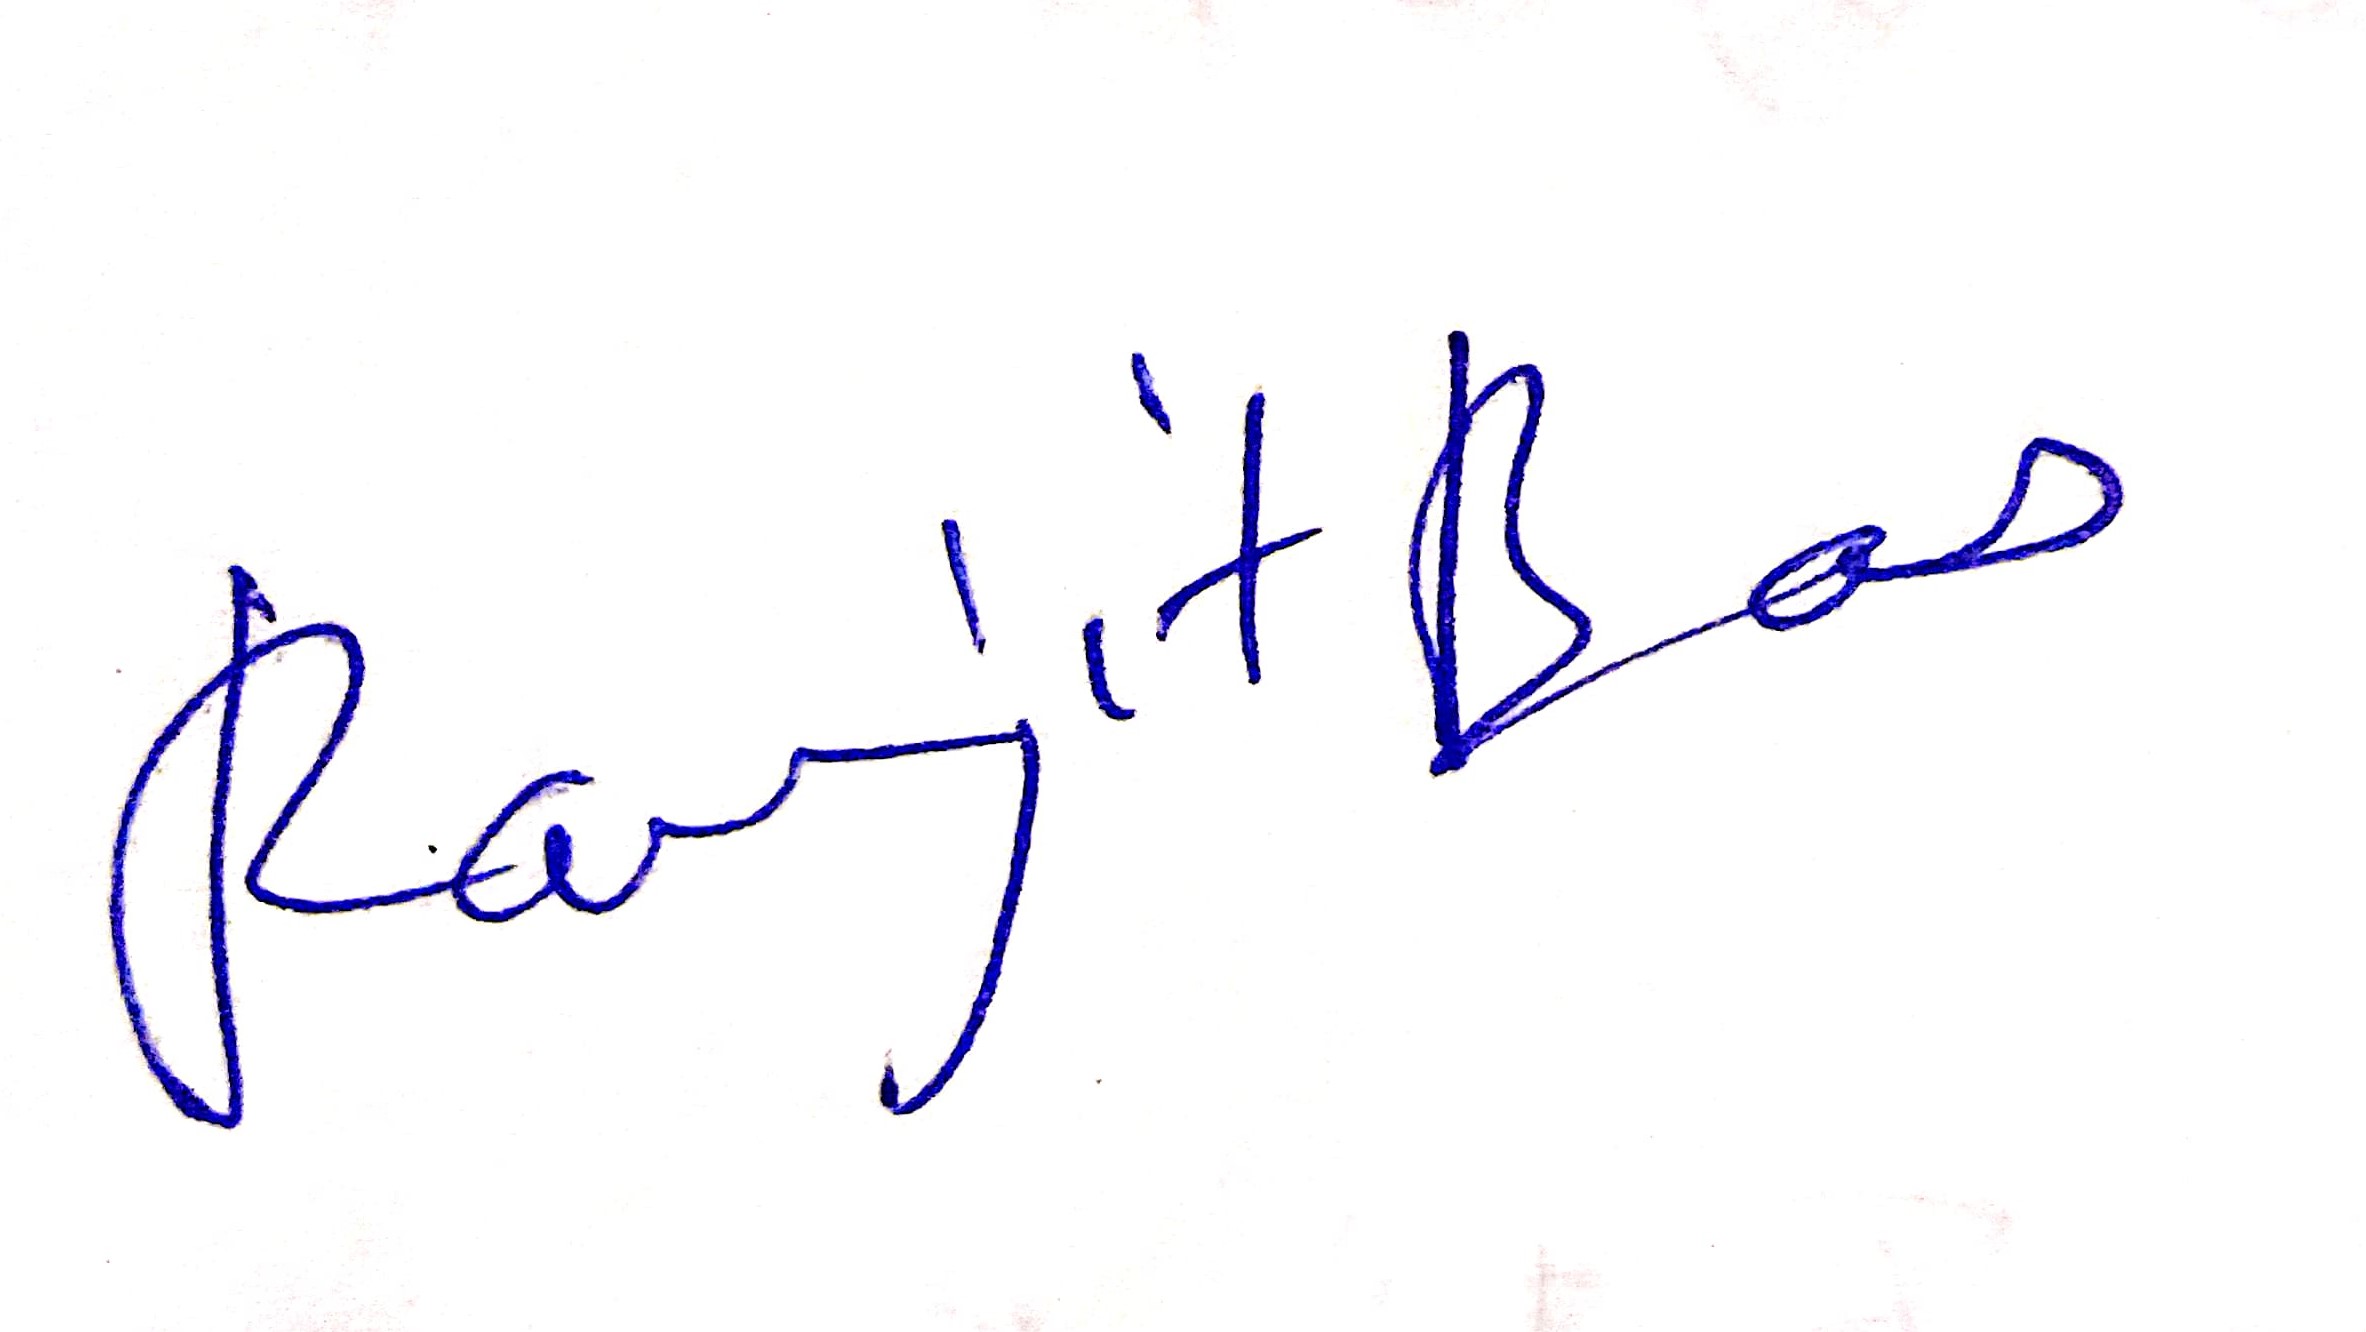 Ranjit Bas